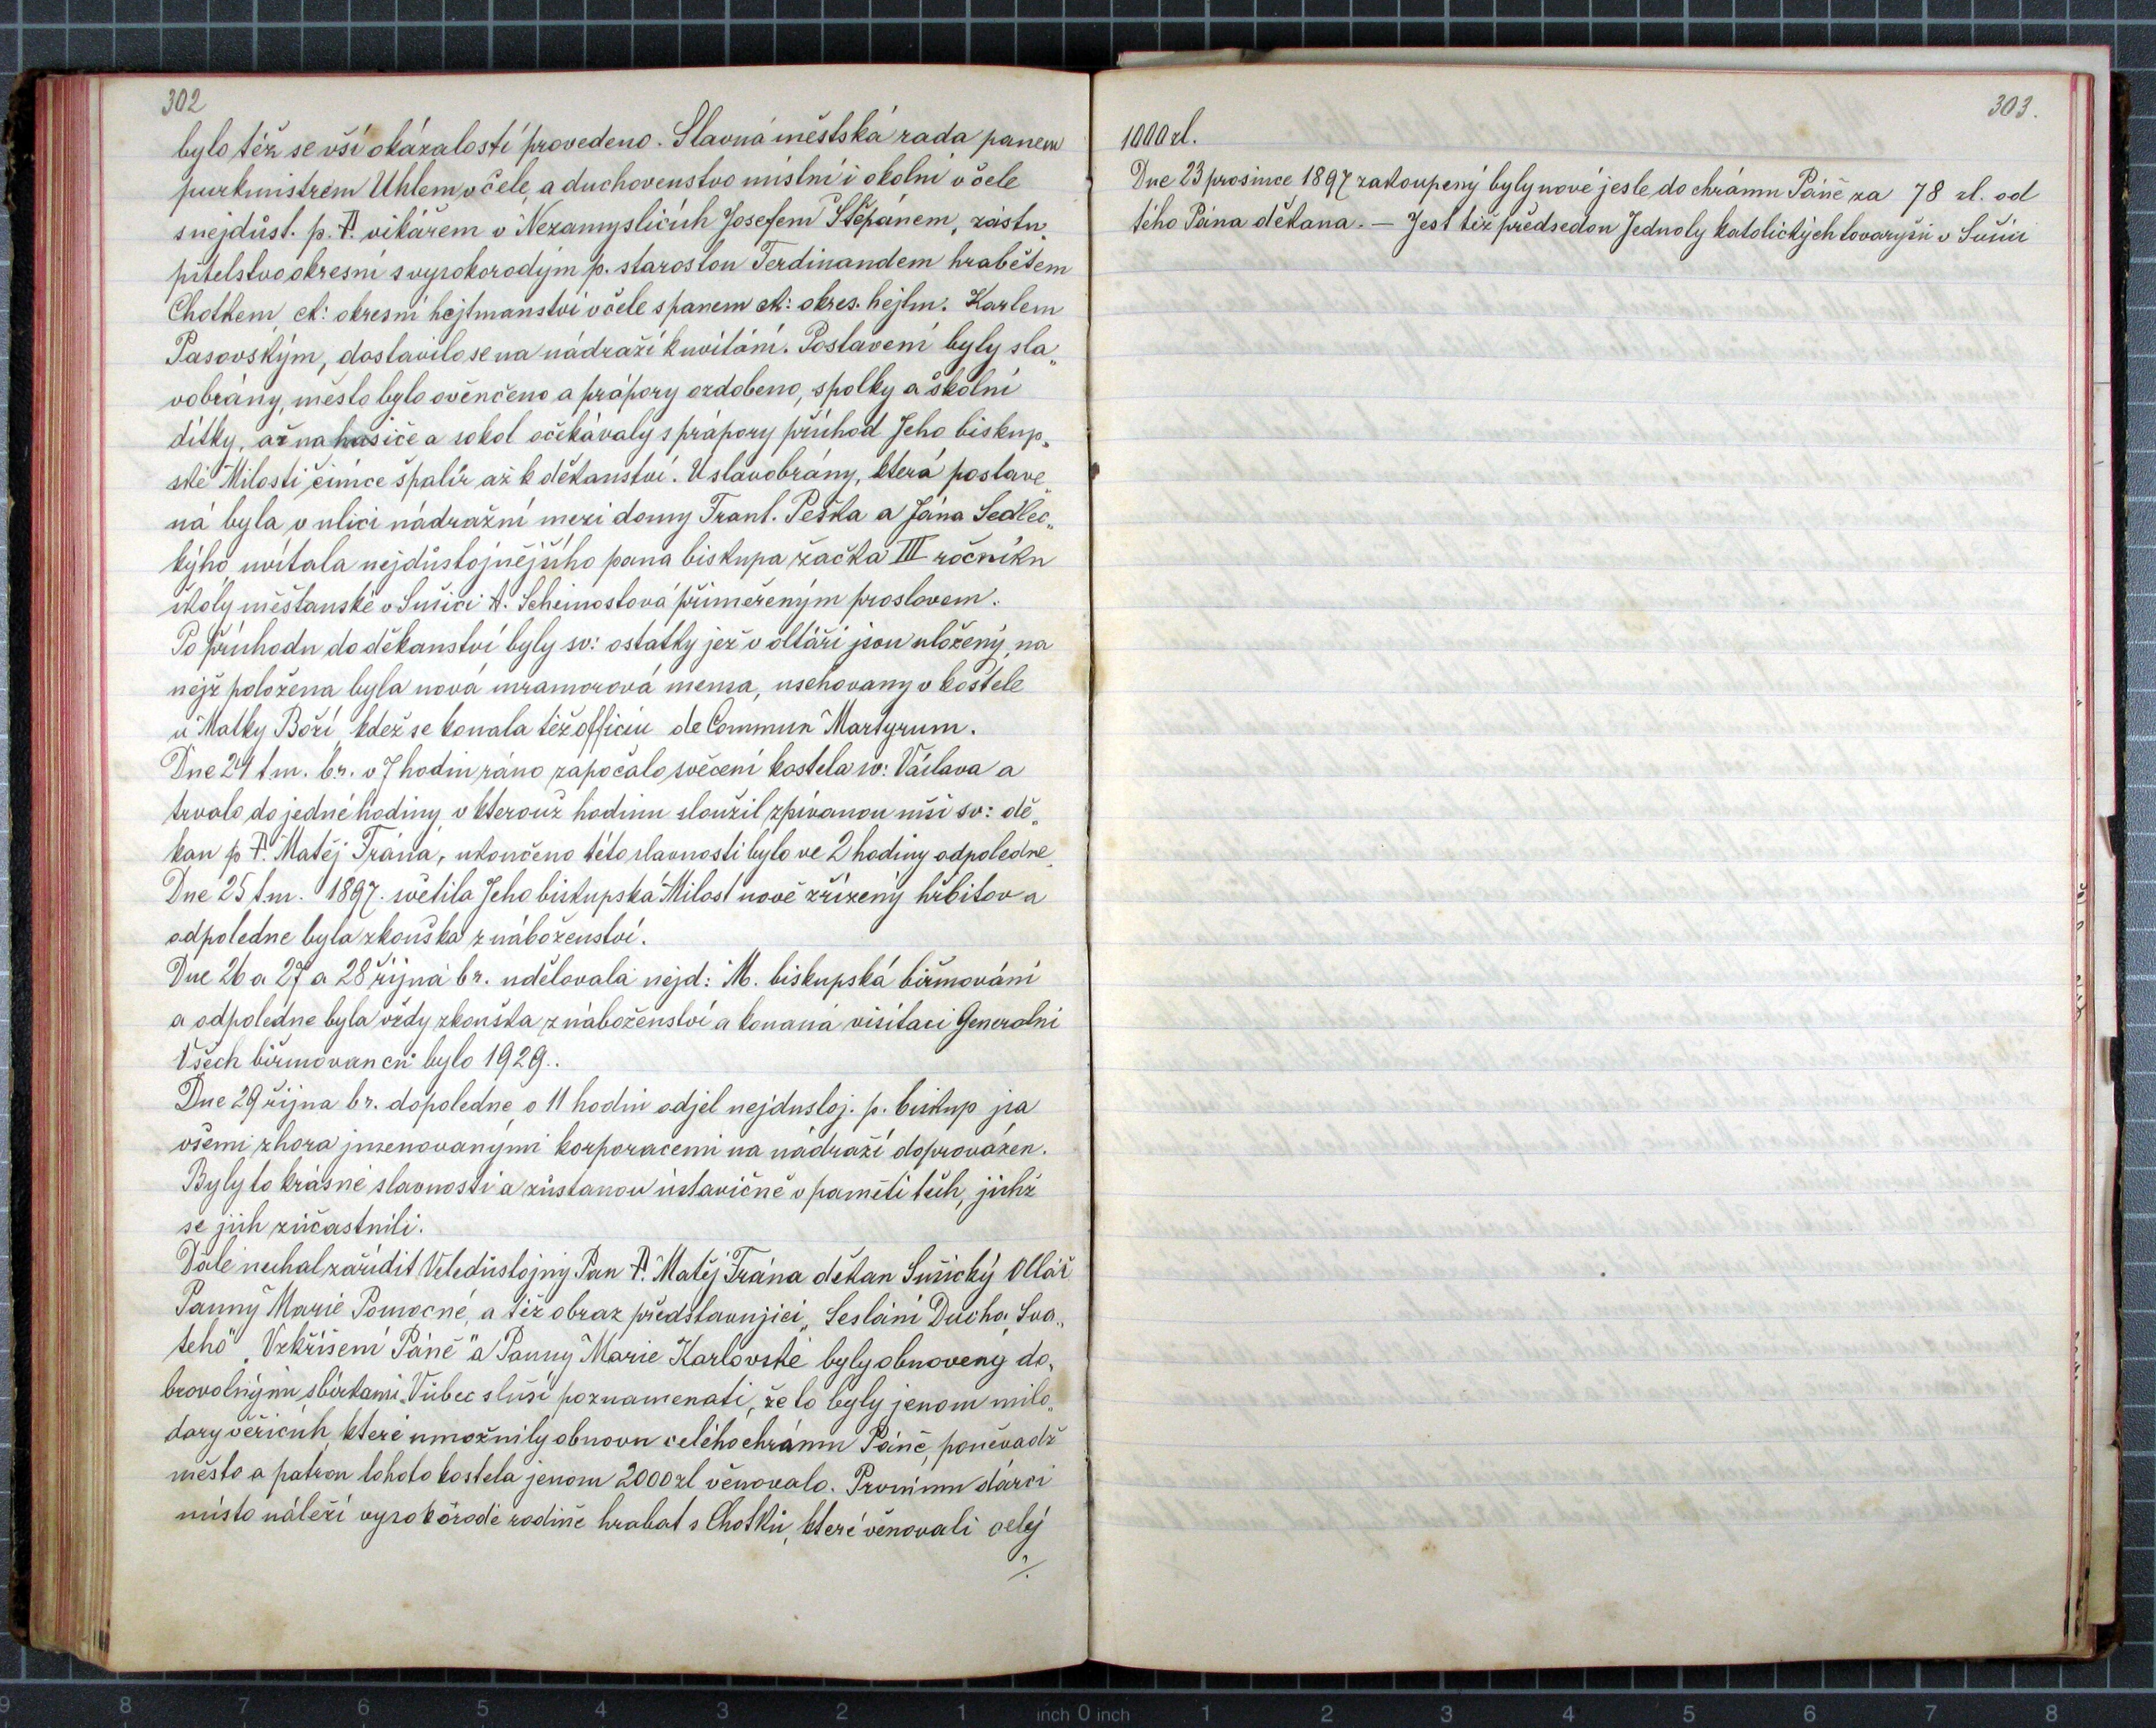 302
bylo též se vší okázalostí provedeno. Slavná městská rada panem
purkmistrem Uhlem v čele, a duchovenstvo místní i okolní v čele
s nejdůst. p. P. vikářem v Nezamyslicích Josefem Štěpánem, zástu„
pitelstvo okresní s vysokorodým p. starostou Ferdinandem hrabětem
Chotkem, ck: okresní hejtmanství v čele s panem ck: okres. hejtm. Karlem
Pasovským, dostavilo se na nádraží k uvítání. Postavení byly sla„
vobrány, město bylo ověnčeno a prápory ozdobeno, spolky a školní
dítky, až na hasiče a sokol očekávaly s prápory příchod Jeho biskup„
ské Milosti činíce špalír až k děkanství. U slavobrány, která postave„
ná byla v ulici nádražní mezi domy Frant. Peška a Jána Sedlec„
kýho uvítala nejdůstojnějšího pana biskupa žačka III ročníku
školy měšťanské v Sušici A. Scheinostová přiměřeným proslovem.
Po příchodu do děkanství byly sv: ostatky jež v oltáři jsou uloženy, na
nějž položena byla nová mramorová mensa, uschovany v kostele
u Matky Boží, kdež se konala též officiu de Commun Martyrum.
Dne 24 t m. b.r. v 7 hodin ráno započalo svěcení kostela sv: Václava a
trvalo do jedné hodiny v kterouž hodinu sloužil zpívanou mši sv: dě„
kan p P. Matěj Frána, ukončeno této slavnosti bylo ve 2 hodiny odpoledne.
Dne 25 t.m. 1897. světila Jeho biskupská Milost nově zřízený hřbitov a
odpoledne byla zkouška z náboženství.
Dne 26 a 27 a 28 října b r. udělovala nejd: M. biskupská biřmování
a odpoledne byla vždy zkouška z náboženství a konaná visitaci Generalni
Všech biřmovanců bylo 1929..
Dne 29 října b r. dopoledne o 11 hodin odjel nejdustoj. p. biskup jsa
všemi zhora jmenovanými korporacemi na nádraží doprovázen.
Byly to krásné slavnosti a zůstanou ústavičně v paměti těch, jichž
se jich zúčastnili.
Dále nechal zařídit Veledůstojný Pan P. Matěj Frána děkan Sušický Oltář
Panny Marie Pomocné, a též obraz představující „Seslání Ducha Sva„
tého" „Vzkříšení Páně" a Panny Marie Karlovské byly obnoveny do„
brovolnými sbírkami. Vůbec sluší poznamenati, že to byly jenom milo„
dary věřících, které umožnily obnovu celého chrámu Páně, poněvadž
město a patron tohoto kostela jenom 2000 zl věnovalo. Prvnímu dárci
místo náleží vysokorodé rodině hrabat s Chotků, které věnovali celý
./.
303.
1000 zl.
Dne 23 prosince 1897 zakoupený byly nové jesle do chrámu Páně za 78 zl. od
tého Pána děkana. — Jest též předsedou Jednoty katolických tovaryšů v Sušici